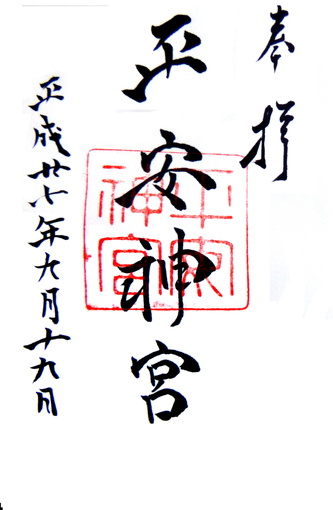 奉拝
平安神宮
平成廿七年九月十九日